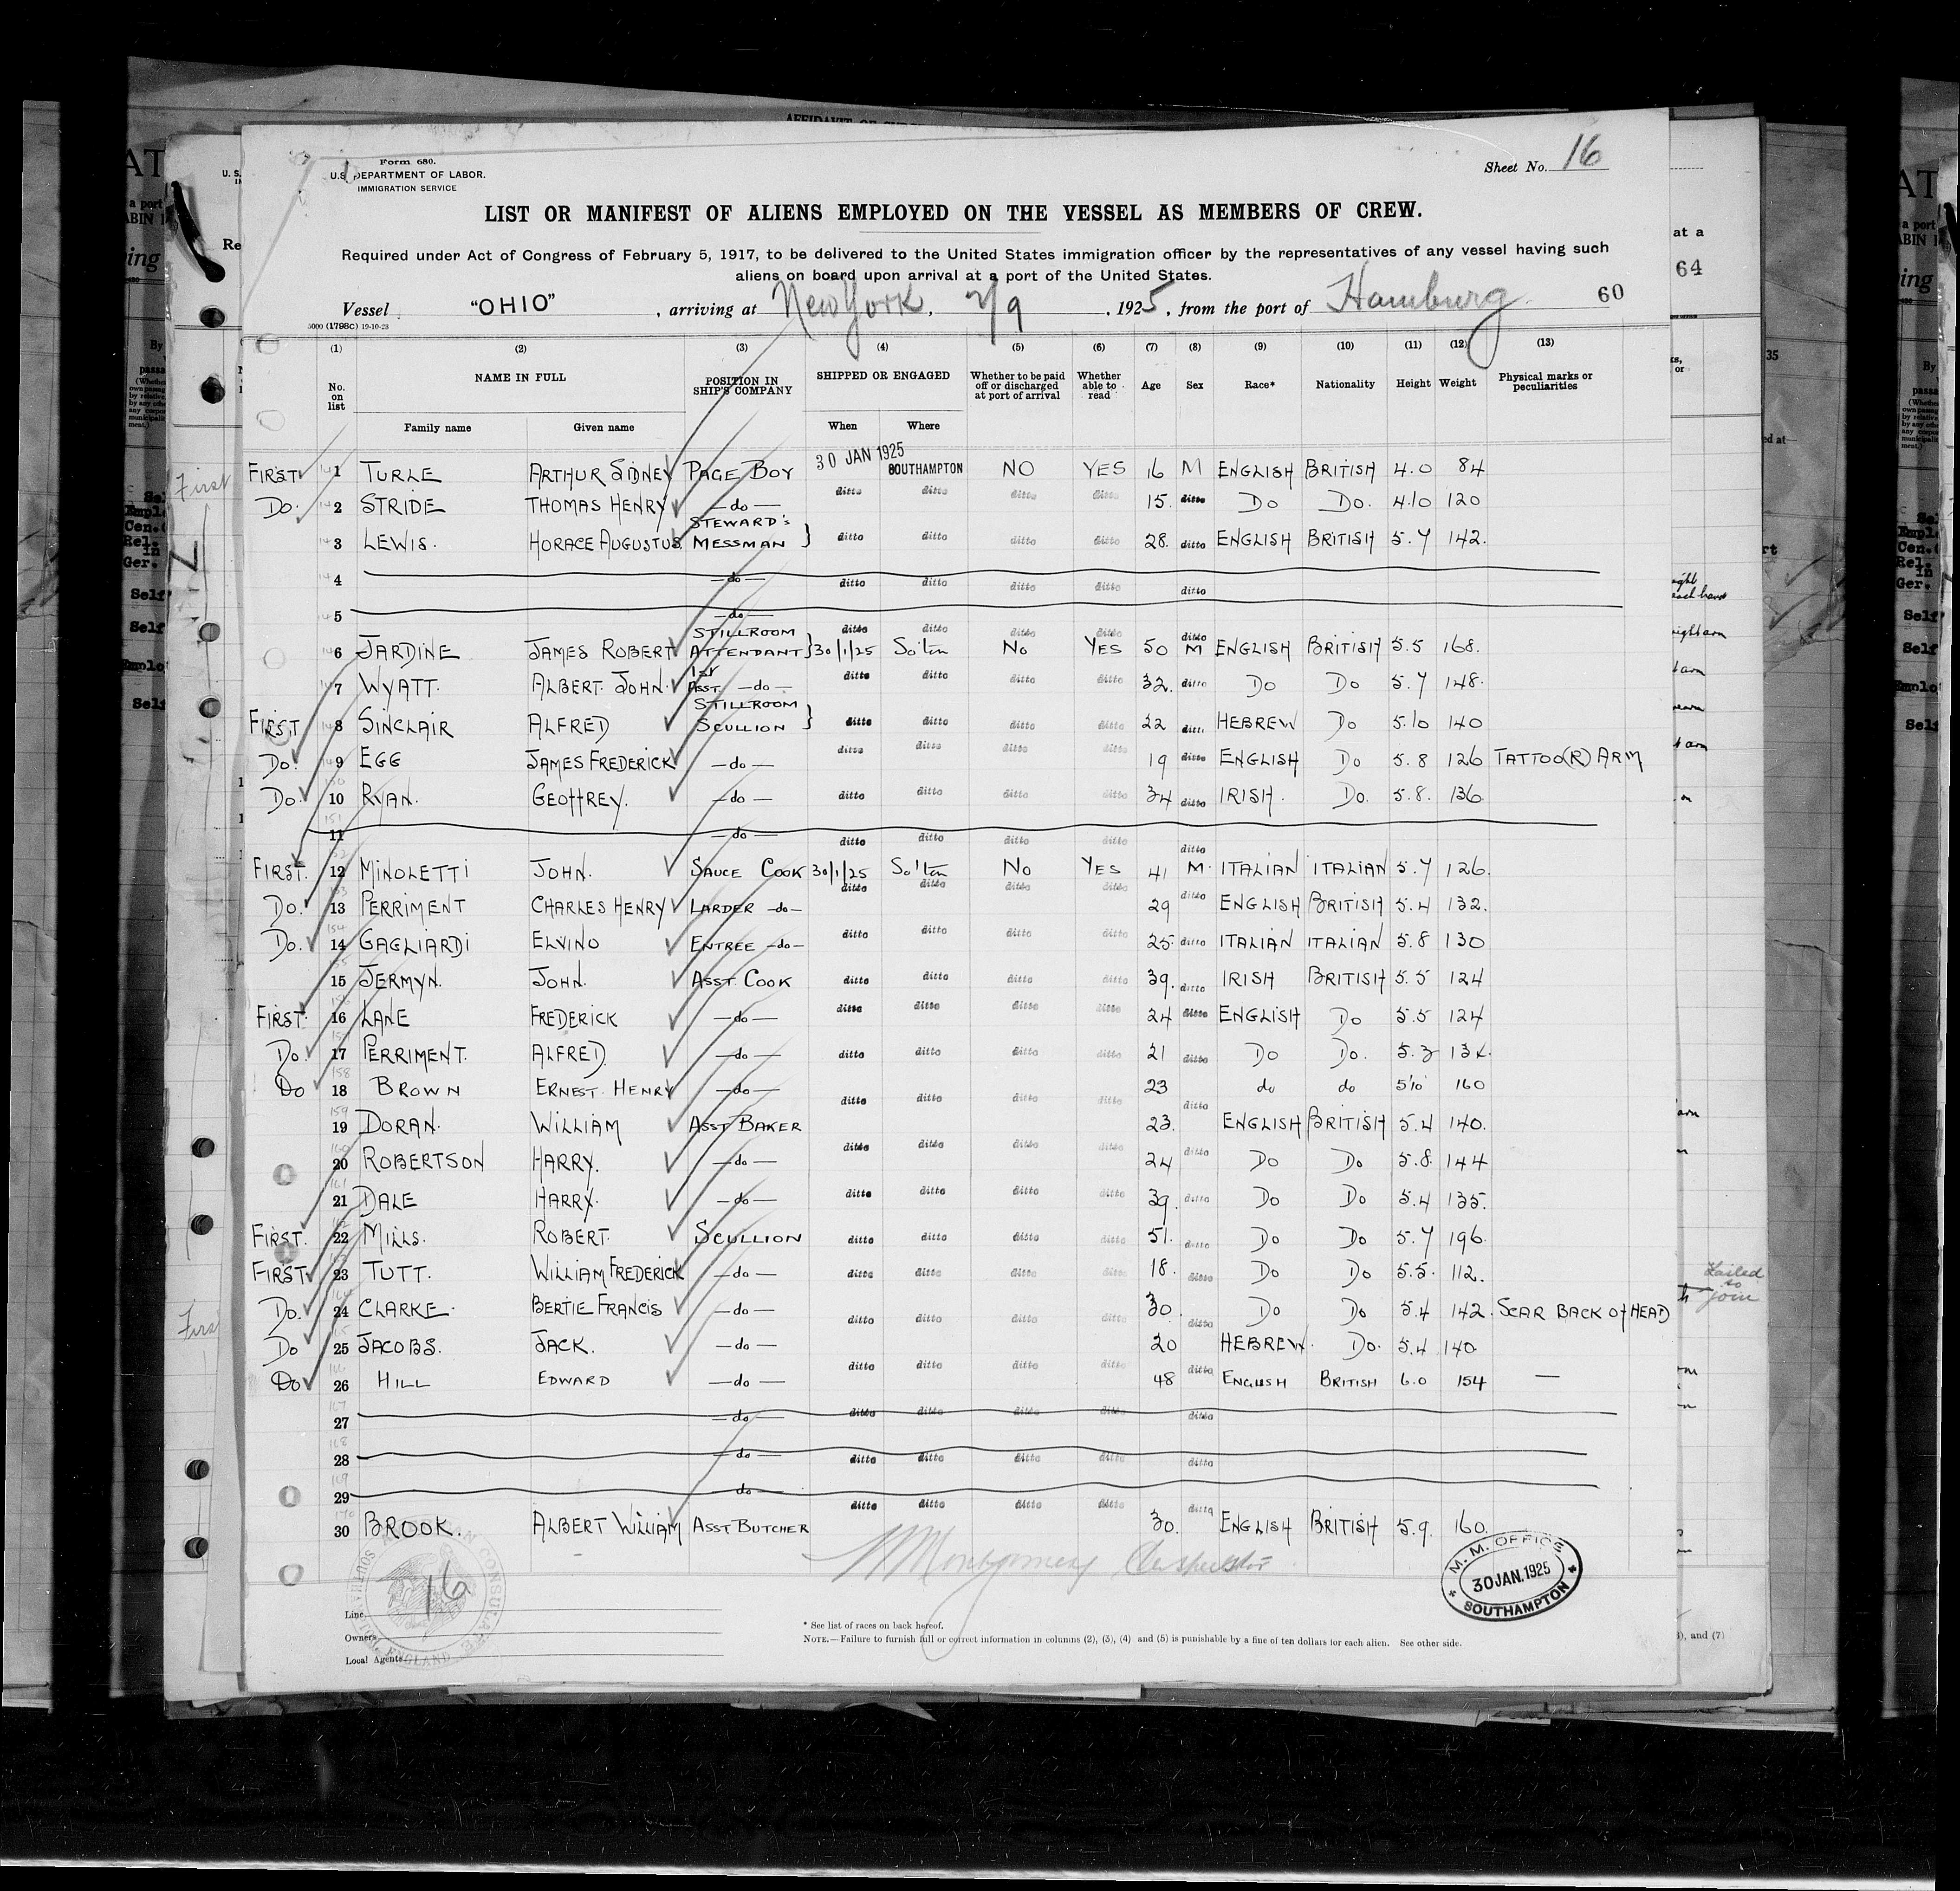 Form 680.
U.S. DEPARTMENT OF LABOR.
IMMIGRATION SERVICE
Sheet No. 16
LIST OR MANIFEST OF ALIENS EMPLOYED ON THE VESSEL AS MEMBERS OF CREW.
Required under Act of Congress of February 5, 1917, to be delivered to the United States immigration officer by the representatives of any vessel having such
aliens on board upon arrival at a port of the United States.
Vessel "OHIO", arriving at New York, 2/9, 1925, from the port of Hamburg 60
5000 (1798C) 19-10-23
(1) (2) (3) (4) (5) (6) (7) (8) (9) (10) (11) (12) (13)
No. on list NAME IN FULL POSITION IN SHIP'S COMPANY SHIPPED OR ENGAGED Whether to be paid off or discharged at port of arrival Whether able to read Age Sex Race* Nationality Height Weight Physical marks or peculiarities
Family name Given name When Where
FIRST 1 TURLE ARTHUR SIDNEY PAGE BOY 30 JAN 1925 SOUTHAMPTON NO YES 16 M ENGLISH BRITISH 4.0 84
Do. 2 STRIDE THOMAS HENRY —do— ditto ditto ditto ditto 15. ditto Do Do. 4.10 120
3 LEWIS. HORACE AUGUSTUS STEWARD'S MESSMAN } ditto ditto ditto ditto 28. ditto ENGLISH BRITISH 5.7 142.
4 —do— ditto ditto ditto ditto ditto
5 —do— ditto ditto ditto ditto ditto
6 JARDINE JAMES ROBERT STILLROOM ATTENDANT } 30/1/25 So'ton No YES 50 M ENGLISH BRITISH 5.5 168.
7 WYATT. ALBERT JOHN. 1st ASST. —do— ditto ditto ditto ditto 32. ditto Do Do 5.7 148.
FIRST 8 SINCLAIR ALFRED STILLROOM SCULLION } ditto ditto ditto ditto 22 ditto HEBREW Do 5.10 140
Do. 9 EGG JAMES FREDERICK —do— ditto ditto ditto ditto 19 ditto ENGLISH Do 5.8 126 TATTOO(R) ARM
Do. 10 RYAN. GEOFFREY. —do— ditto ditto ditto ditto 34 ditto IRISH. Do. 5.8. 136
11 —do— ditto ditto ditto ditto ditto
FIRST. 12 MINOLETTI JOHN. SAUCE COOK 30/1/25 So'ton No YES 41 M. ITALIAN ITALIAN 5.7 126.
Do. 13 PERRIMENT CHARLES HENRY LARDER —do— ditto ditto ditto ditto 29 ditto ENGLISH BRITISH 5.4 132.
Do. 14 GAGLIARDI ELVINO ENTREE —do— ditto ditto ditto ditto 25. ditto ITALIAN ITALIAN 5.8 130
15 JERMYN. JOHN. ASST COOK ditto ditto ditto ditto 39. ditto IRISH BRITISH 5.5 124
FIRST. 16 LANE FREDERICK —do— ditto ditto ditto ditto 24 ditto ENGLISH Do 5.5 124
Do. 17 PERRIMENT. ALFRED. —do— ditto ditto ditto ditto 21 ditto Do Do. 5.3
Do 18 BROWN ERNEST HENRY —do— ditto ditto ditto ditto 23 ditto do do 5'10" 160
19 DORAN. WILLIAM ASST BAKER 23. ENGLISH BRITISH 5.4 140.
20 ROBERTSON HARRY. —do— ditto ditto ditto ditto 24 ditto Do Do 5.8. 144
21 DALE HARRY. —do— ditto ditto ditto ditto 39. ditto Do Do 5.4 135.
FIRST. 22 MILLS. ROBERT. SCULLION ditto ditto ditto ditto 51. ditto Do Do 5.7 196.
FIRST 23 TUTT. WILLIAM FREDERICK —do— ditto ditto ditto ditto 18. ditto Do Do 5.5. 112.
Do. 24 CLARKE. BERTIE FRANCIS —do— ditto ditto ditto ditto 30. ditto Do Do 5.4 142. SCAR BACK Of HEAD
Do 25 JACOBS. JACK. —do— 20 HEBREW. Do. 5.4 140
Do 26 HILL EDWARD —do— ditto ditto ditto ditto 48 ditto ENGLISH BRITISH 6.0 154 —
27 —do— ditto ditto ditto ditto ditto
28 —do— ditto ditto ditto ditto ditto
29 —do— ditto ditto ditto ditto ditto
30 BROOK. ALBERT WILLIAM ASST BUTCHER 30. ENGLISH BRITISH 5.9. 160.
Montgomery
M. M. OFFICE
30 JAN. 1925
SOUTHAMPTON
AMERICAN CONSULATE
SOUTHAMPTON, ENGLAND
16
Line
Owners
Local Agents
* See list of races on back hereof.
NOTE.—Failure to furnish full or correct information in columns (2), (3), (4) and (5) is punishable by a fine of ten dollars for each alien. See other side.
First
First
at a
64
35
Failed
to
join
), and (7)